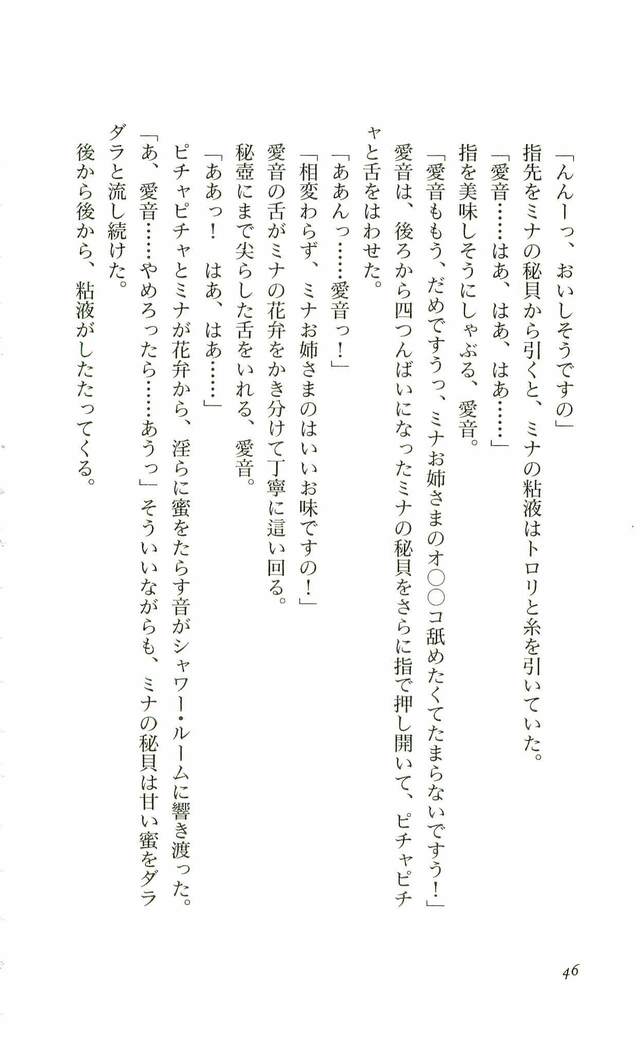 「んんーっ、おいしそうですの」
指先をミナの秘貝から引くと、ミナの粘液はトロリと糸を引いていた。
「愛音……はあ、はあ、はあ……」
指を美味しそうにしゃぶる、愛音。
「愛音ももう、だめですうっ、ミナお姉さまのオ〇〇コ舐めたくてたまらないですう！」
愛音は、後ろから四つんばいになったミナの秘貝をさらに指で押し開いて、ピチャピチ
ャと舌をはわせた。
「ああんっ……愛音っ！」
「相変わらず、ミナお姉さまのはいいお味ですの！」
愛音の舌がミナの花弁をかき分けて丁寧に這い回る。
秘壺にまで尖らした舌をいれる、愛音。
「ああっ！　はあ、はあ……」
ピチャピチャとミナが花弁から、淫らに蜜をたらす音がシャワー・ルームに響き渡った。
「あ、愛音……やめろったら……あうっ」そういいながらも、ミナの秘貝は甘い蜜をダラ
ダラと流し続けた。
後から後から、粘液がしたたってくる。
46